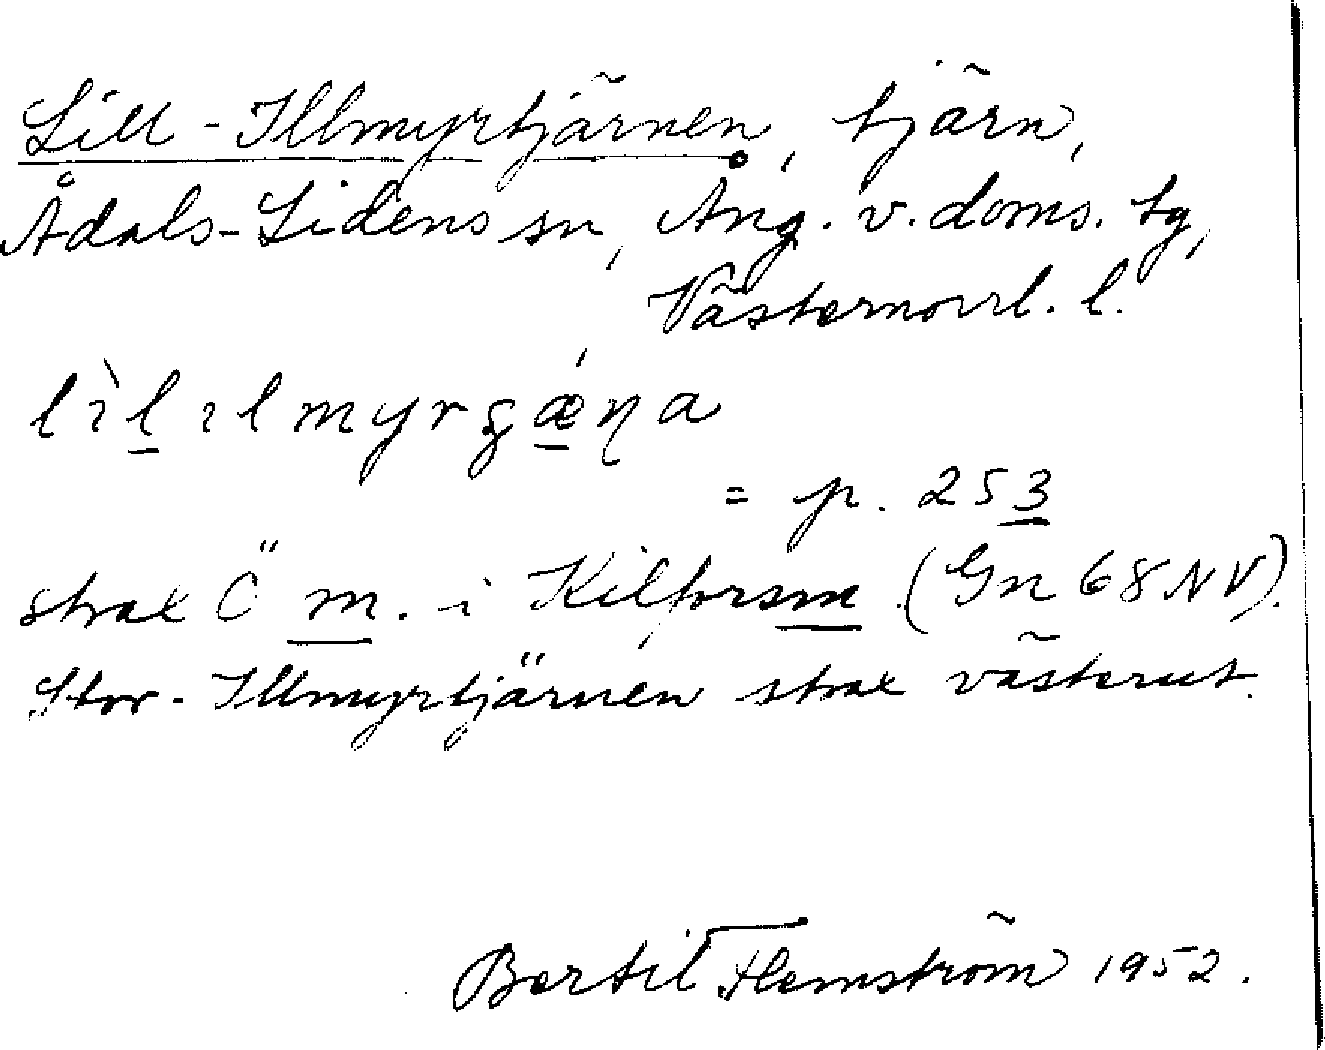 Lill-Illmyrtjärnen, tjärn,
Ådals-Lidens sn, Ång. v. doms. tg,
Västernorrl. l.
lìl̠ılmyrʂǽ̠ŋa
= p. 253
strax Ö m. i Kilforsm (Gn 68 NV).
Stor-Illmyrtjärnen strax västerut.
Bertil Flemström 1952.